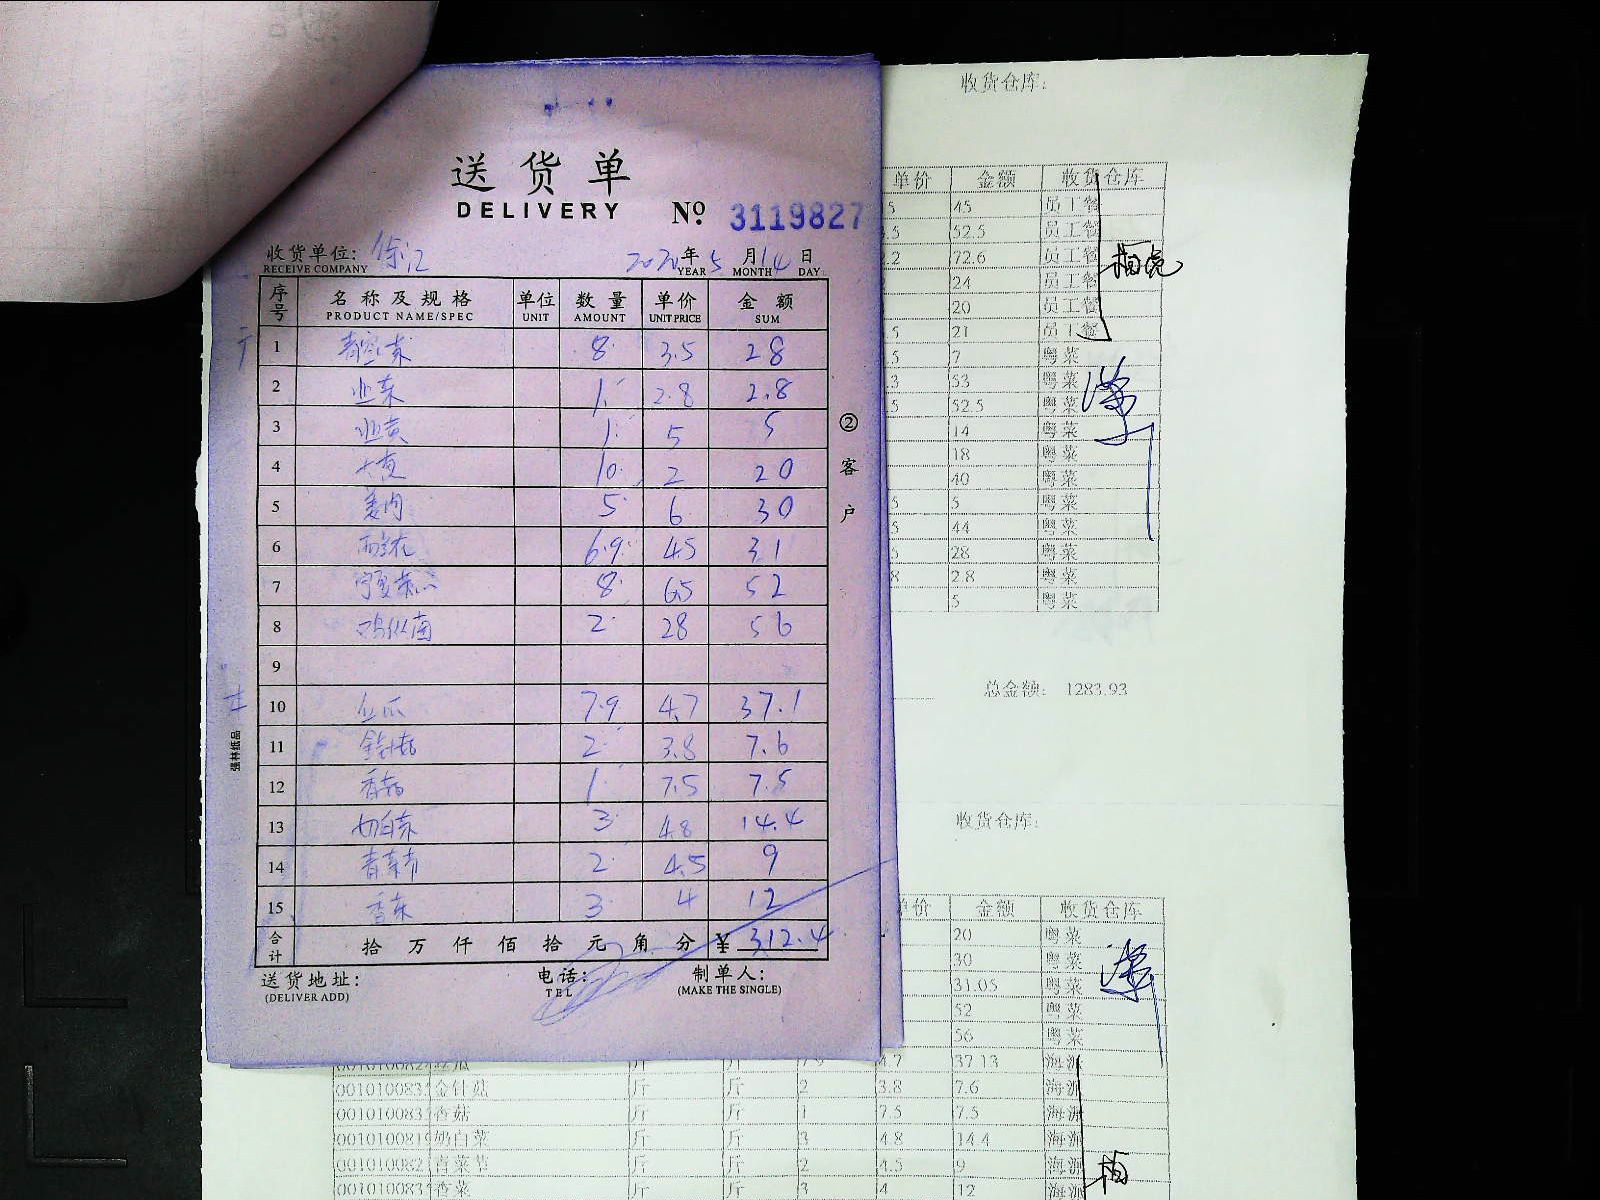 送货单
DELIVERY № 3119827
收货单位: 徐汇 2020年5月14日
RECEIVE COMPANY YEAR MONTH DAY
序号 名称及规格 单位 数量 单价 金额
PRODUCT NAME/SPEC UNIT AMOUNT UNIT PRICE SUM
1 8 3.5 28
2 韭菜 1 2.8 2.8
3 韭黄 1 5 5
4 10 2 20
5 姜肉 5 6 30
6 西兰花 6.9 4.5 31
7 宁夏菜心 8 6.5 52
8 鸡枞菌 2 28 56
9
10 丝瓜 7.9 4.7 37.1
11 金针菇 2 3.8 7.6
12 香菇 1 7.5 7.5
13 奶白菜 3 4.8 14.4
14 青菜节 2 4.5 9
15 香菜 3 4 12
合计 拾万仟佰拾元角分 ¥ 312.4
送货地址: 电话: 制单人:
(DELIVER ADD) TEL (MAKE THE SINGLE)
②客户
强林纸品
收货仓库:
单价 金额 收货仓库
5 45 员工餐
.5 52.5 员工餐
.2 72.6 员工餐
24 员工餐
20 员工餐
.5 21 员工餐
5 7 粤菜
3 53 粤菜
.5 52.5 粤菜
14 粤菜
18 粤菜
40 粤菜
5 5 粤菜
5 44 粤菜
28 粤菜
8 2.8 粤菜
5 粤菜
总金额: 1283.93
收货仓库:
单价 金额 收货仓库
20 粤菜
30 粤菜
31.05 粤菜
52 粤菜
56 粤菜
丝瓜 斤 斤 7.9 4.7 37.13 海派
金针菇 斤 斤 2 3.8 7.6 海派
香菇 斤 斤 1 7.5 7.5 海派
奶白菜 斤 斤 3 4.8 14.4 海派
青菜节 斤 斤 2 4.5 9 海派
香菜 斤 斤 3 4 12 海派